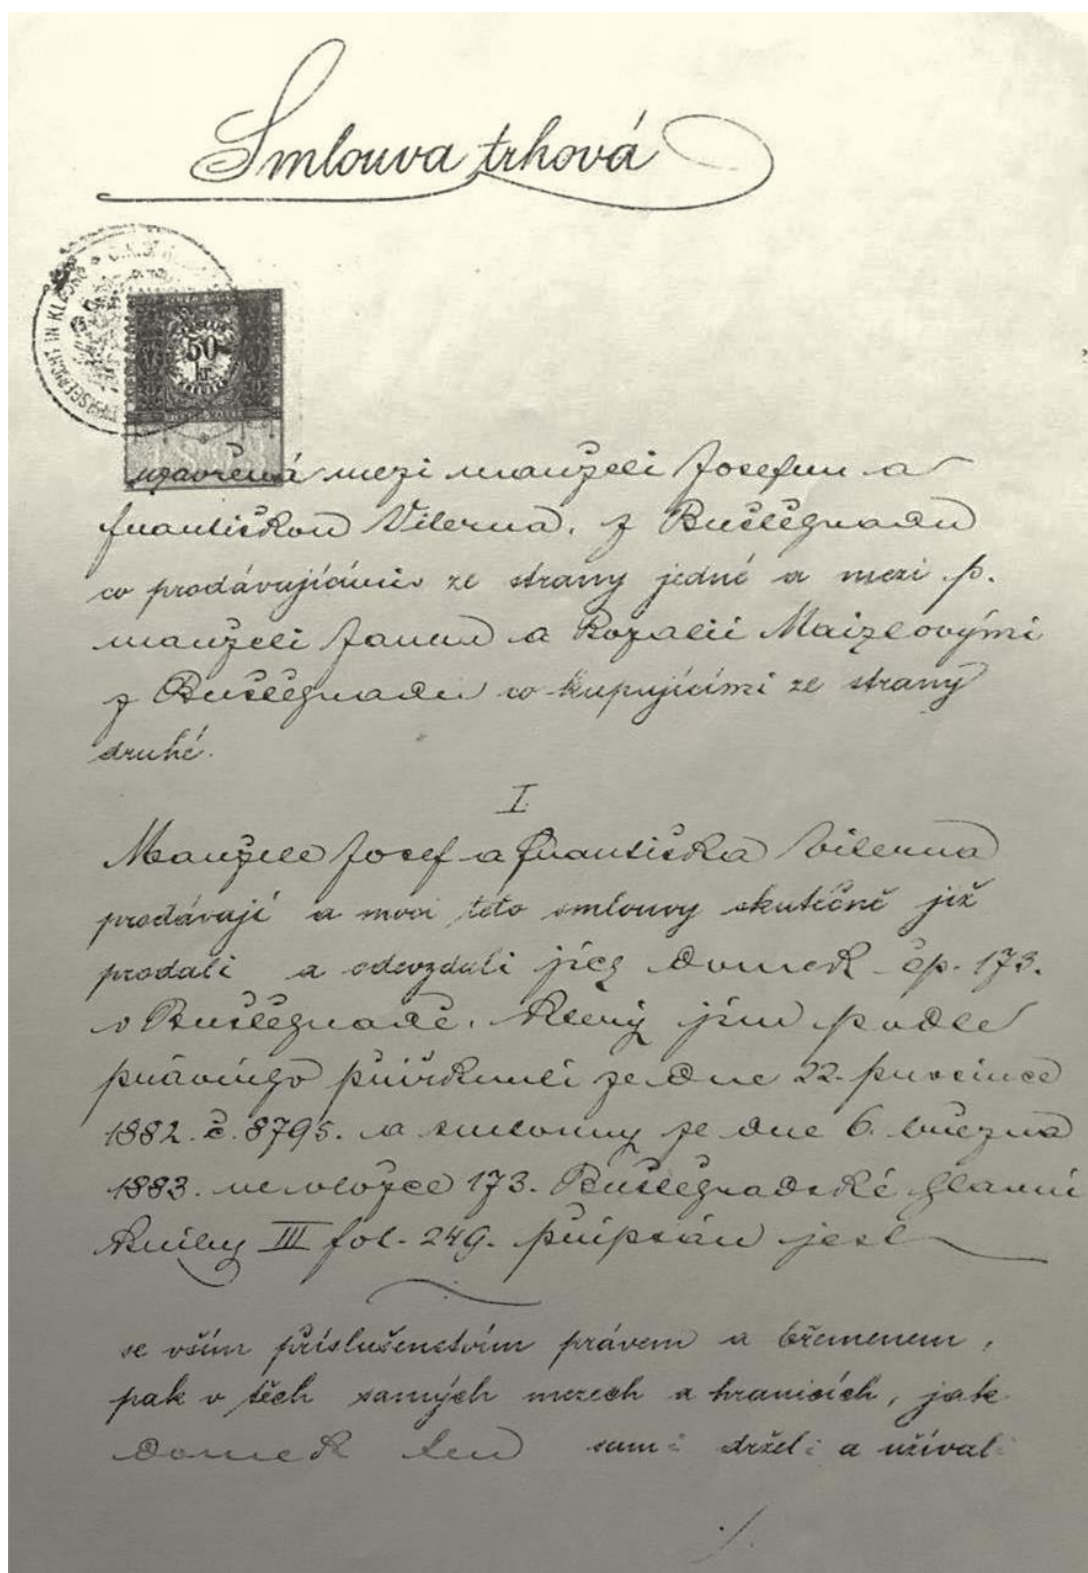 Smlouva trhová
50
kr.
uzavřená mezi manželi Josefem a
Františkou
z Buštěhradu
co prodávajícími ze strany jedné a mezi p.
manželi Janem a Rozalií Maizlovými
z Buštěhradu co kupujícími ze strany
druhé.
I.
Manželé Josef a Františka
prodávají a moci této smlouvy skutečně již
prodali a odevzdali jich domek čp. 173.
v Buštěhradě, který jim podle
právního přiřknutí ze dne 22. prosince
1882. č. 8795. a smlouvy ze dne 6. března
1883. ve vložce 173. Buštěhradské hlavní
knihy III fol. 249. připsán jest
se vším příslušenstvím právem a břemenem,
pak v těch samých mezech a hranicích, jak
domek ten sami drželi a užívali